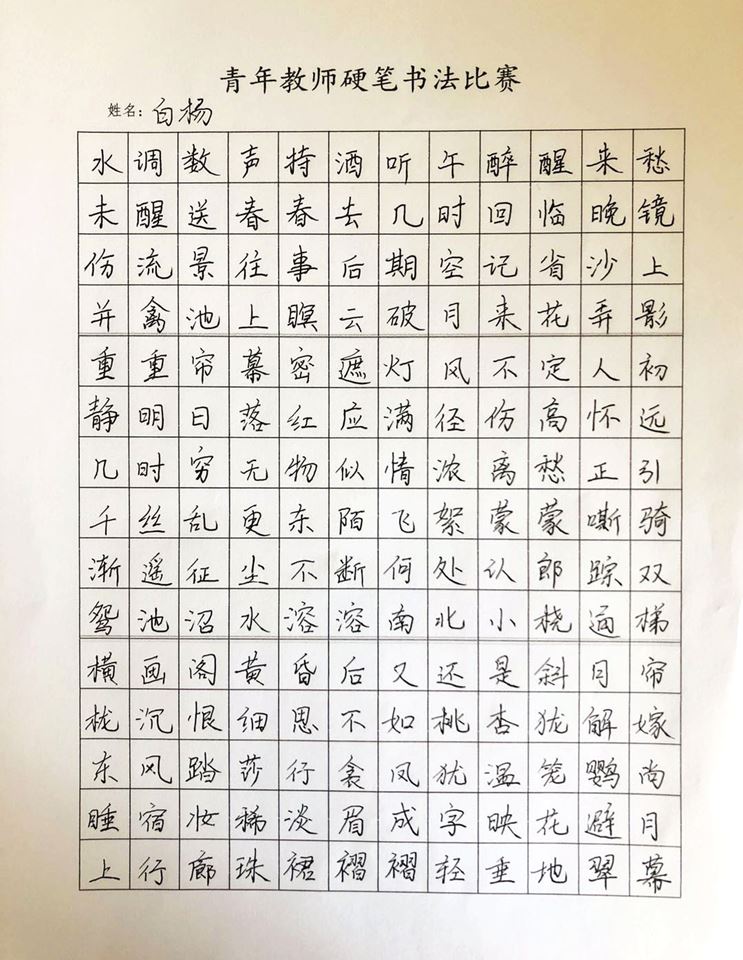 青年教师硬笔书法比赛
姓名：白杨
水调数声持酒听午醉醒来愁
未醒送春春去几时回临晚镜
伤流景往事后期空记省沙上
并禽池上暝云破月来花弄影
重重帘幕密遮灯风不定人初
静明日落红应满径伤高怀远
几时穷无物似情浓离愁正引
千丝乱更东陌飞絮蒙蒙嘶骑
渐遥征尘不断何处认郎踪双
鸳池沼水溶溶南北小桡通梯
横画阁黄昏后又还是斜月帘
栊沉恨细思不如桃杏犹解嫁
东风踏莎行衾凤犹温笼鹦尚
睡宿妆稀淡眉成字映花避月
上行廊珠裙褶褶轻垂地翠幕